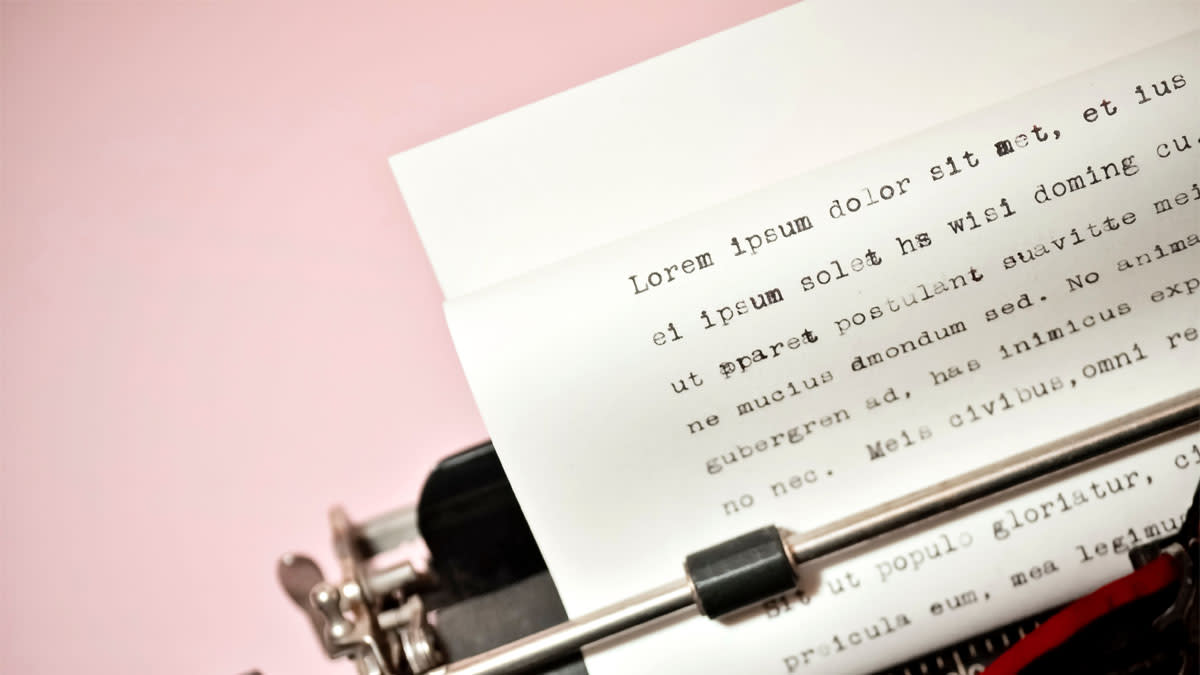 Lorem ipsum dolor sit amet, et ius
ei ipsum solet has wisi doming cu.
ut pparet postulant suavitte mei
ne mucius dmondum sed. No anima
gubergren ad, has inimicus exp
no nec. Meis civibus,omni re
Sit ut populo gloriatur, ci
preicula eum, mea legimus